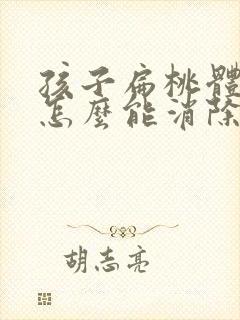 孩子扁桃體
怎麼能消除
胡志亮